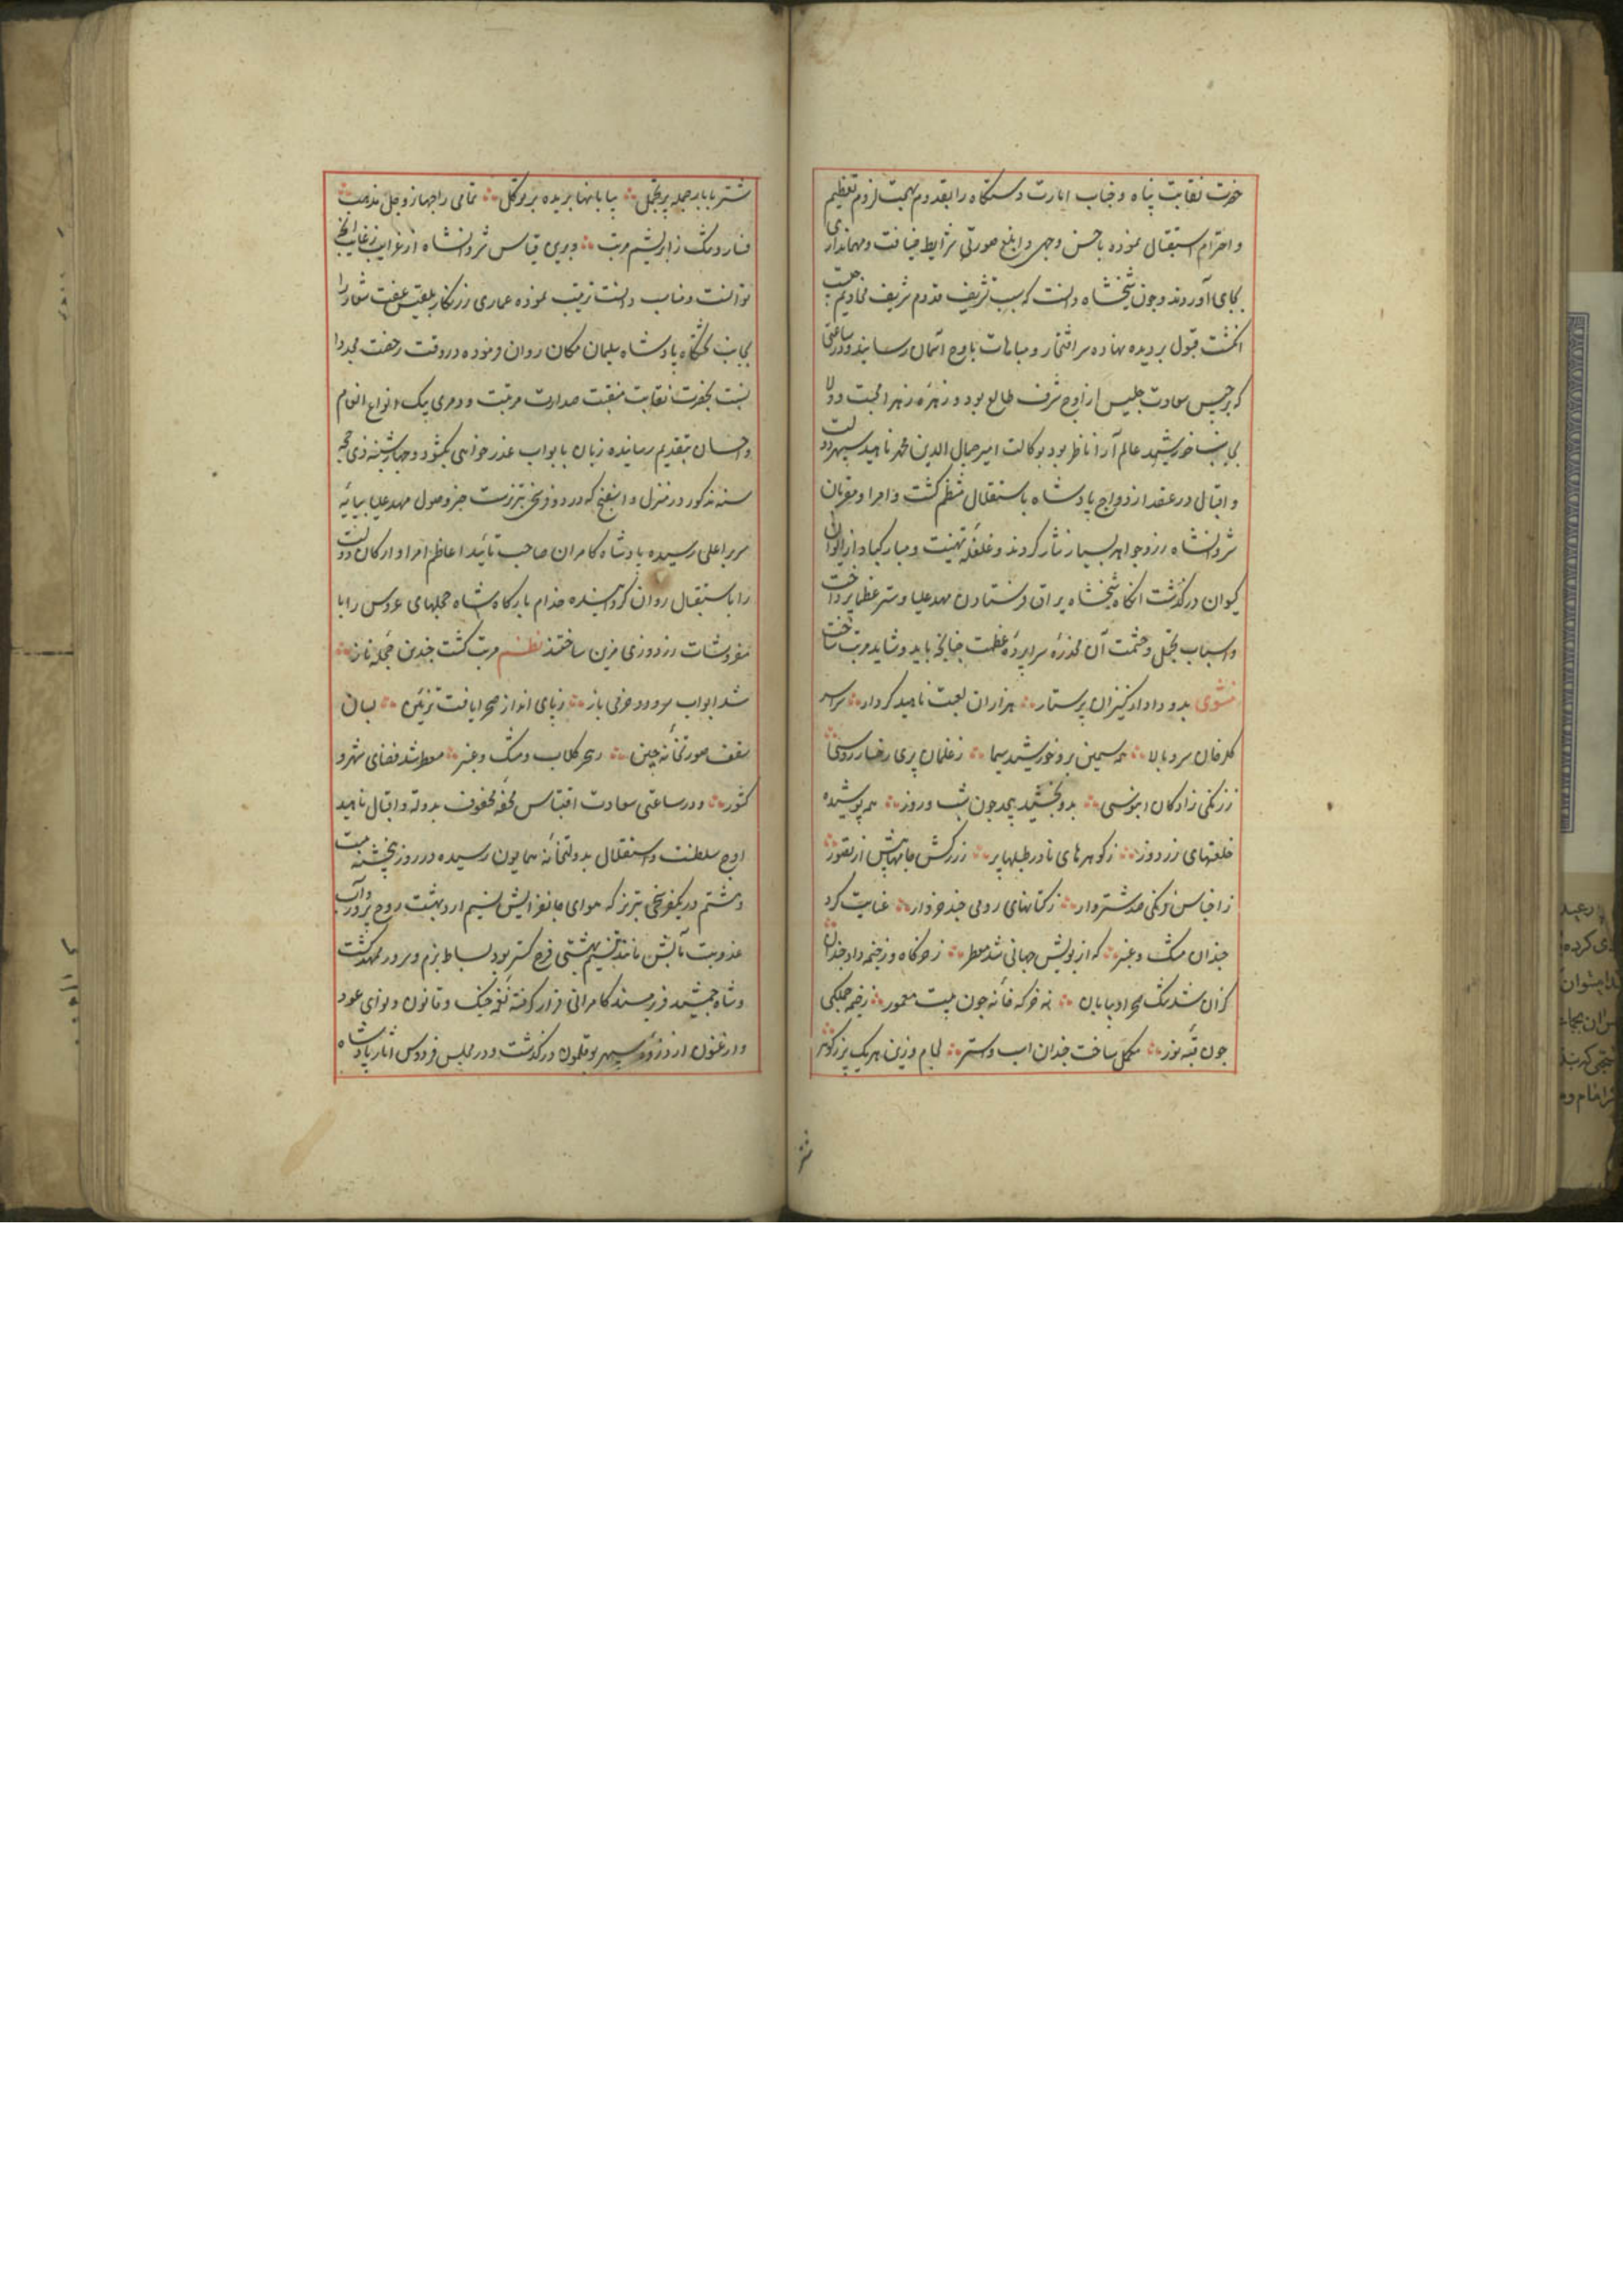 حضرت نقابت پناه و جناب امارت دستگاه را بقدوم بهجت لزوم تعظیم
و احترام استقبال نموده باحسن وجهی و ابلغ صورتی شرایط ضیافت و مهمانداری
بجای آوردند و چون شیخشاه دانست که سبب تشریف قدوم شریف مخادیم چیست
انگشت قبول بر دیده نهاده سر افتخار و مباهات باوج آسمان رسانید و در ساعتی
که برجیس سعادت جلیس از اوج شرف طالع بود و زهره زهرا محبت و ولا
بجانب خورشید عالم آرا ناظر بود بوکالت امیر جمال الدین محمد ناهید سپهر دولت
و اقبال در عقد ازدواج پادشاه باستقلال منتظم گشت و امرا و مقربان
شروانشاه زر و جواهر بسیار نثار کردند و غلغله تهنیت و مبارکباد از ایوان
کیوان درگذشت انگاه شیخشاه بیراق فرستادن مهد علیا و ستر عظمی پرداخت
و اسباب تجمل و حشمت آن مخدره سراپرده عظمت چنانچه باید و شاید مرتب ساخت
مثنوی بدو داد از کنیزان پرستار هزاران لعبت ناهید کردار سراسر
گلرخان سرو بالا همه سیمین بر و خورشید سیما ز غلمان پری رخسار روسی
ز زنگی زادگان ابنوسی بدو بخشید بیحد چون شب و روز همه پوشیده
خلعتهای زردوز ز گوهرهای نادر طبلها پر ز زرکش جامهاش از تقوز
ز اجناس فرنکی صد شتروار ز کتانهای رومی چند خروار عنایت کرد
چندان مشک و عنبر که از بویش جهانی شد معطر ز خرگاه و ز خیمه داد چندان
کزان شد تنگ صحرا و بیابان نه خرگه خانه چون بیت معمور ز خیمه جملگی
چون قبه نور مکمل ساخت چندان اسب و استر لجام و زین هر یک پر ز گوهر
شتر با بار جمله پر تجمل بیابانها بریده بر توکل تمامی را جهاز و جل مذهب
فسار و تنگ ز ابریشم مرتب و برین قیاس شروانشاه از غرایب رغایب آنچه
توانست و مناسب دانست ترتیب نموده عماری زرنگار بلقیس عفت شعار را
بجانب تختگاه پادشاه سلیمان مکان روان فرموده در وقت رخصت مجددا
نسبت بحضرت نقابت منقبت صدارت مرتبت و دمری بیک انواع انعام
و احسان بتقدیم رسانیده زبان بابواب عذر خواهی بگشود و چهارشنبه ذی حجه
سنه مذکور در منزل که در دو فرسخی تبریزست خبر وصول مهد علیا بپایه
سریر اعلی رسیده پادشاه کامران صاحب تائید اعاظم امرا و ارکان دولت
را باستقبال روان گردانیده خدام بارگاه شاه حجلهای عروس را با
مفروشات زردوزی مزین ساختند نظم مرتب گشت چندین حجله ناز
شد ابواب سرور و خرمی باز ز پای انداز صحرا یافت تزئین بسان
سقف صورتخانه چین ز بحر گلاب و مشک و عنبر معطر شد فضای شهر و
کشور و در ساعتی سعادت اقتباس محفه محفوف بدولت و اقبال ناهید
اوج سلطنت و استقلال بدولتخانه همایون رسیده در روز پنجشنبه بیست
و هشتم در یکفرسخی تبریز که هوای جانفزایش نسیم اردیبهشت روح پرور و آب
عذوبت مآبش مانند تسنیم بهشتی فرح گستر بود بساط بزم و سرور ممهد گشت
و شاه جمشید فر بر مسند کامرانی قرار گرفته نغمه چنگ و قانون و نوای عود
و ارغنون از ذروه سپهر بوقلمون درگذشت و در مجلس فردوس آثار پادشاه